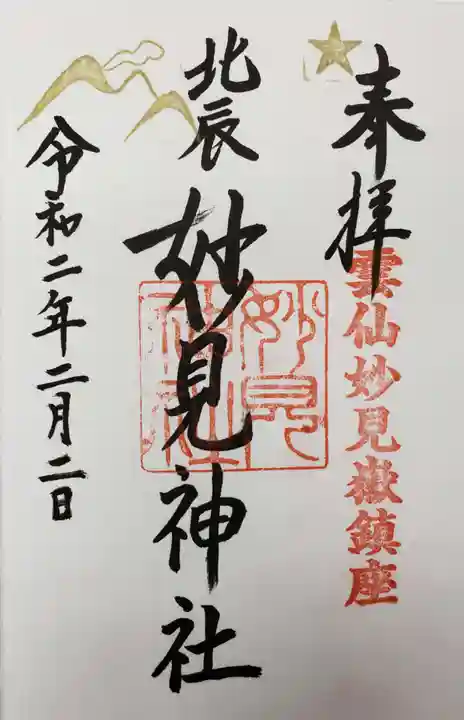 奉拝
雲仙妙見嶽鎮座
北辰
妙見神社
妙見
神社
令和二年二月二日